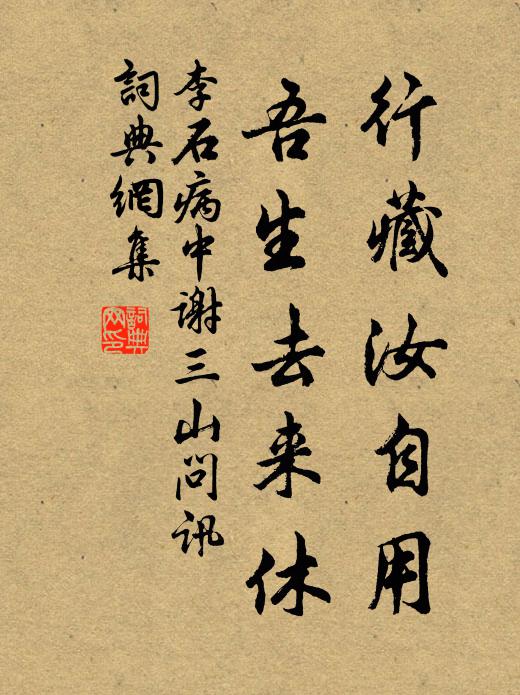 行藏汝自用
吾生去来休
李石病中谢三山問訊
詞典網集
詞典网印